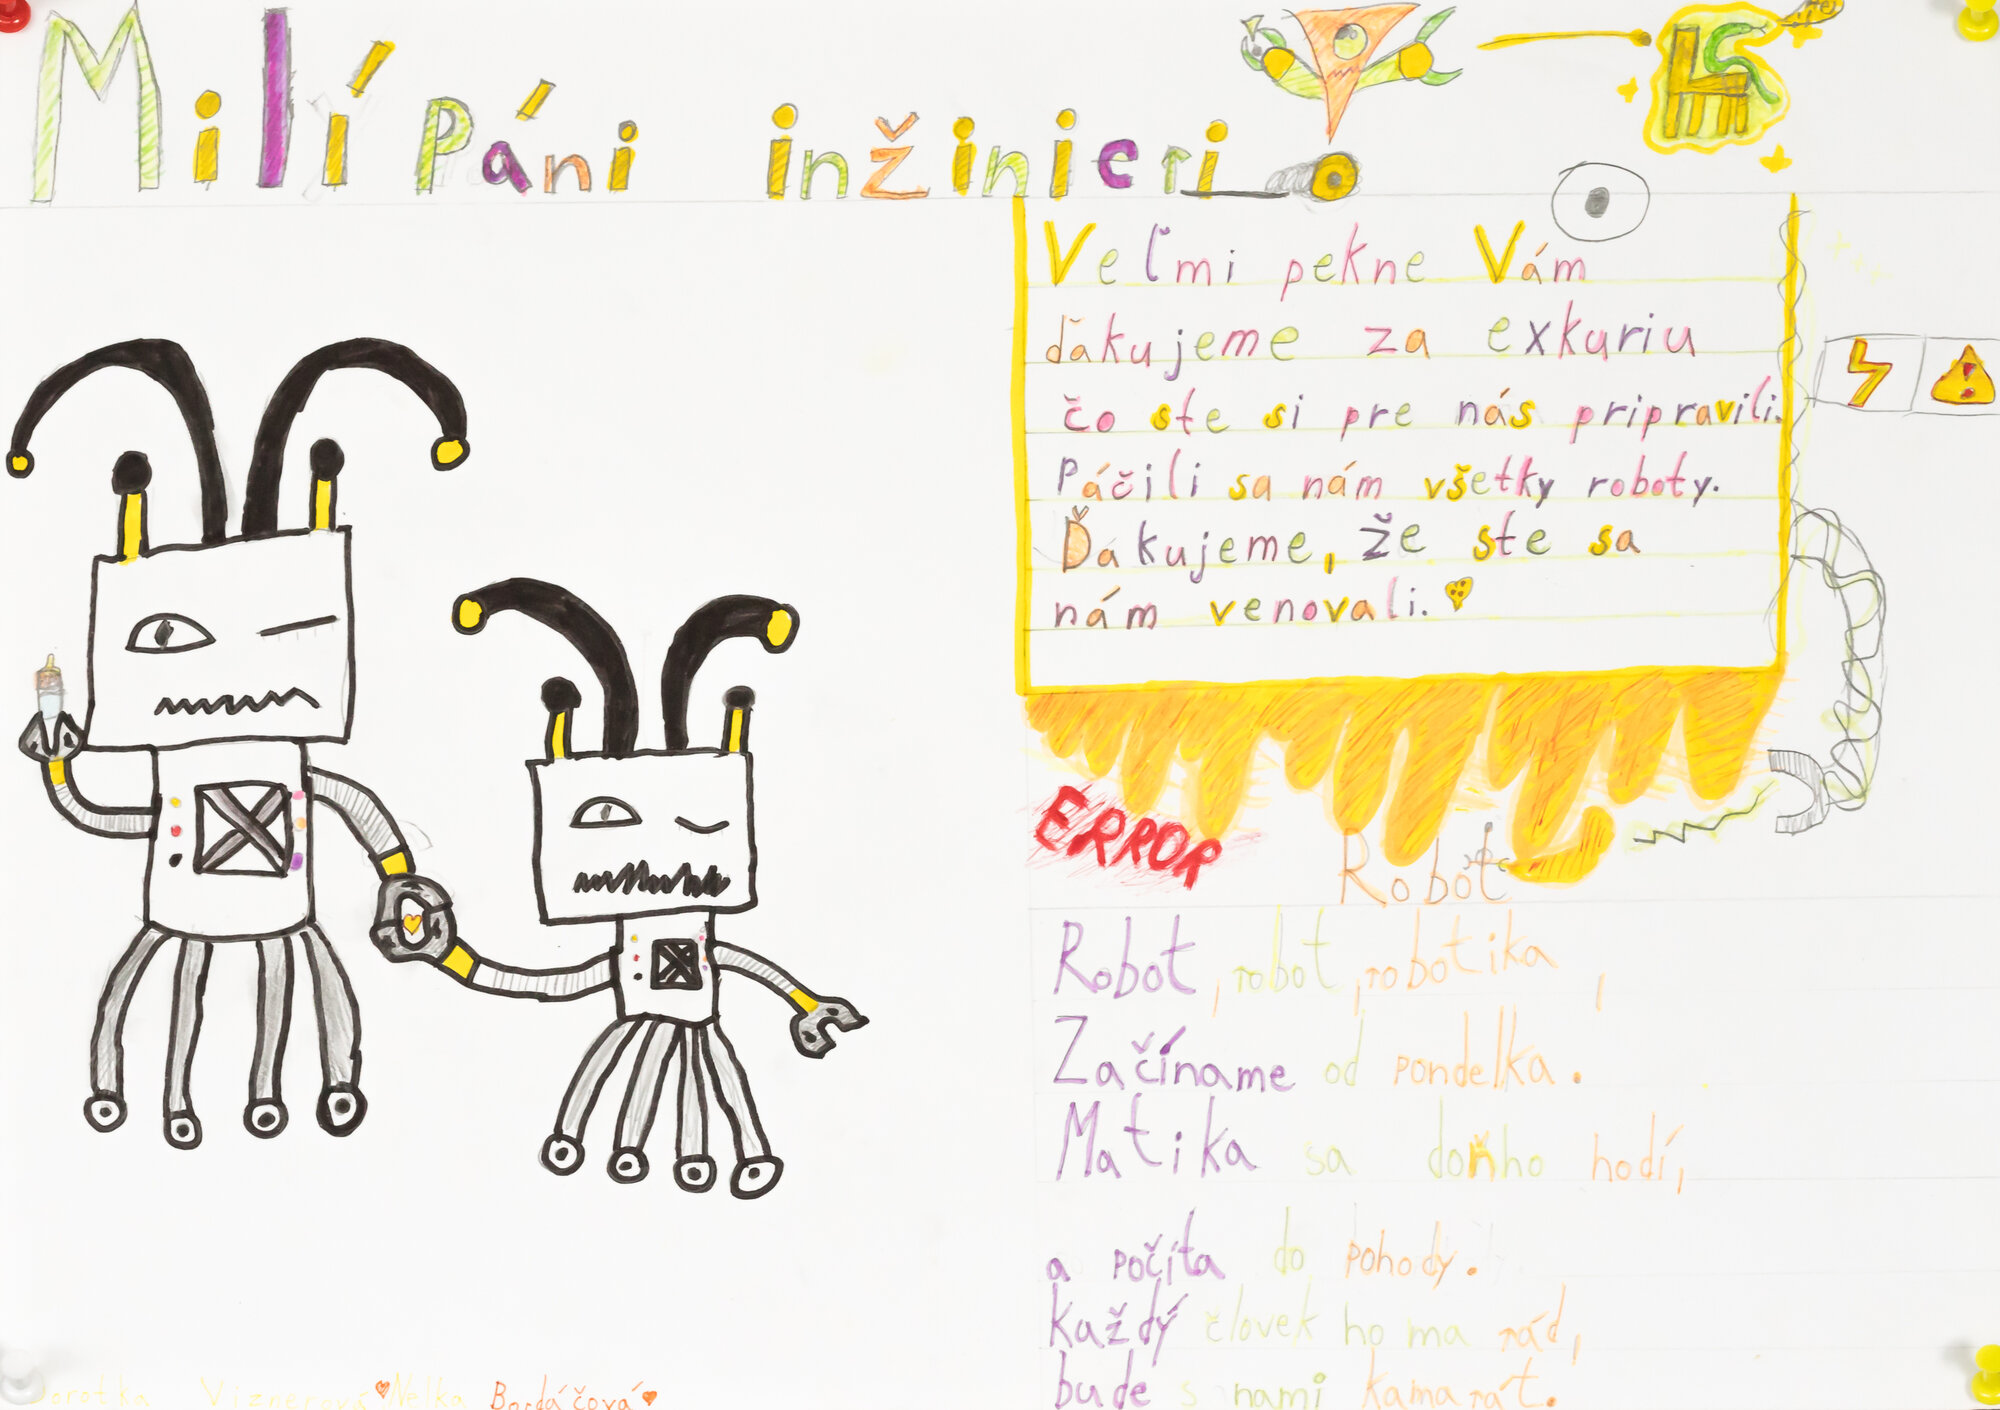 Milí Páni inžinieri
Veľmi pekne Vám
ďakujeme za exkuriu
čo ste si pre nás pripravili.
Páčili sa nám všetky roboty.
Ďakujeme, že ste sa
nám venovali.
ERROR
Robot
Robot, robot, robotika,
Začíname od pondelka.
Matika sa doňho hodí,
a počíta do pohody.
každý človek ho ma rád,
bude s nami kamarát.
Dorotka Viznerová Nelka Bordáčová